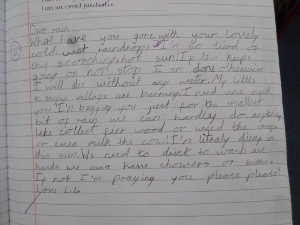 I use correct punctuation
Dear rain
What have you gone with your lovely
cold wet raindrops I'm so tired of
this scorching hot sun. If this keeps
going on not stop I am done otherwise
I will die without any water. My little
village are burning. I need need need
you. I'll beg you just for the smallest
bit of rain we can hardly do anything
like collect fire wood or weed the crops
or even milk the cow. I'm litraly dieing in
this sun. We need to drink to wash are
hands we can't have showers or baths.
If not I'm praying you please please!
Love